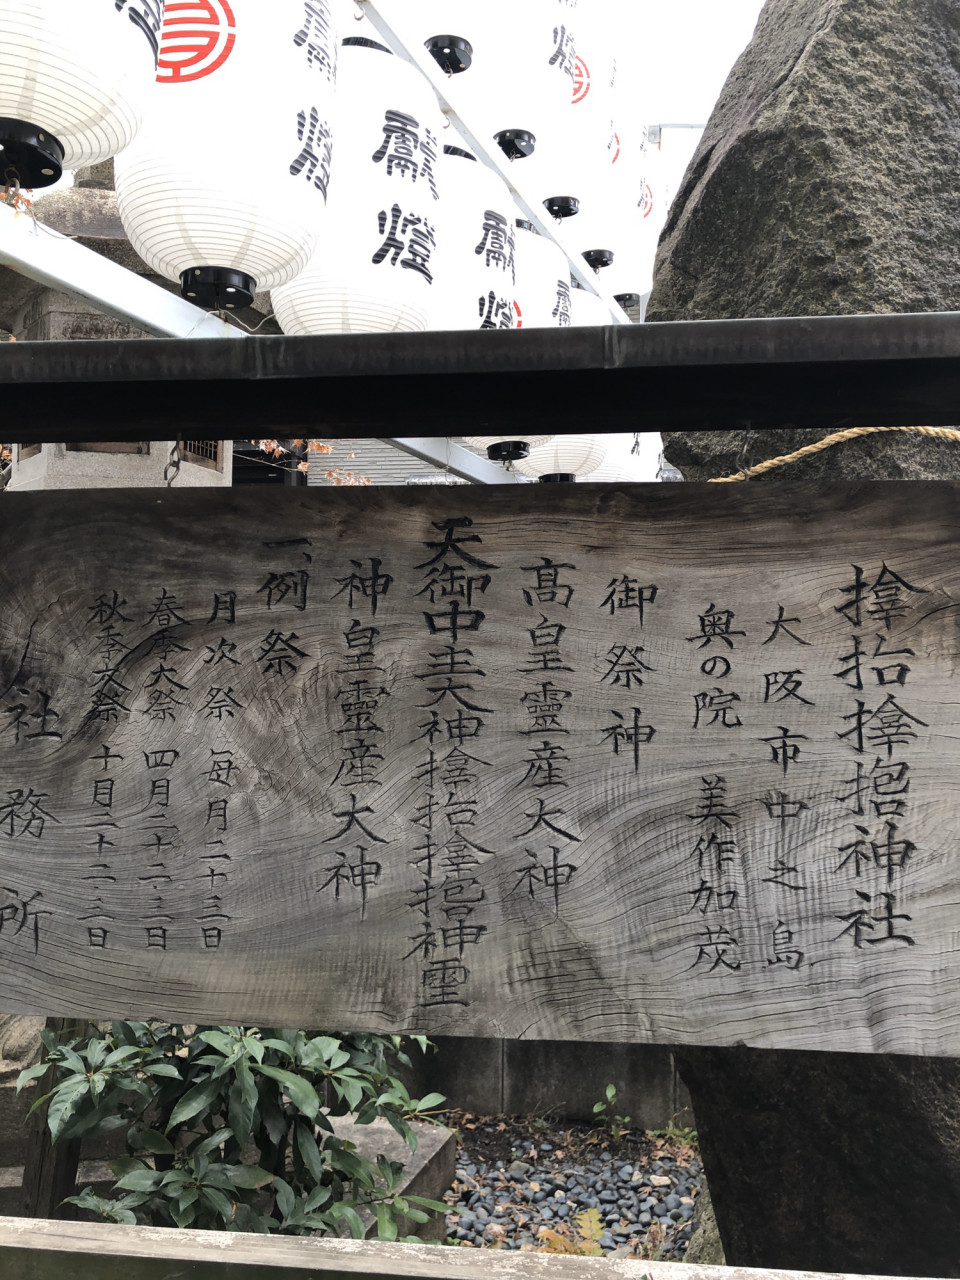 獻燈
獻燈
獻燈
𪮷𫝕𪮇𫝓神社
大阪市中之島
奥の院 美作加茂
御祭神
高皇靈産大神
天御中主大神𪮷𫝕𪮇𫝓神霊
神皇靈産大神
一、例祭
月次祭 毎月二十三日
春季大祭 四月二十二、三日
秋季大祭 十月二十二、三日
社務所